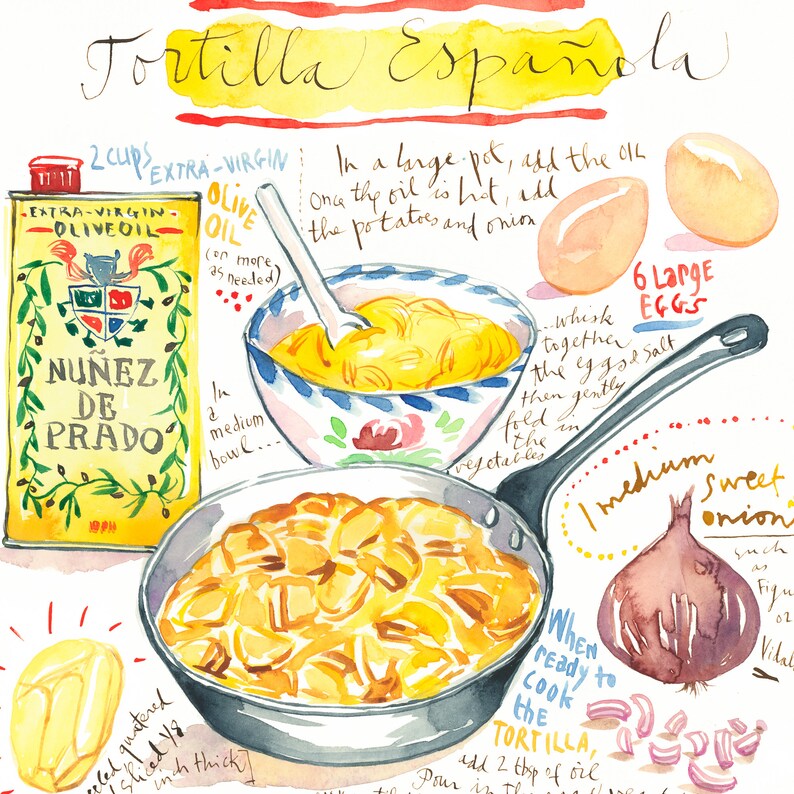 Tortilla Española
2 cups
EXTRA-VIRGIN
OLIVE
OIL
(or more
as needed)
EXTRA-VIRGIN
OLIVE OIL
NUÑEZ
DE
PRADO
In a large pot, add the OIL
Once the oil is hot, add
the potatoes and onion
6 LARGE
EGGS
In
a
medium
bowl...
...whisk
together
the eggs & salt
then gently
fold in
the
vegetables
1 medium
sweet
onion
such
as
Figu
or
Vidal
When
ready to
cook
the
TORTILLA,
add 2 tbsp of oil
Pour in the
eeled quartered
sliced 1/8
inch thick]